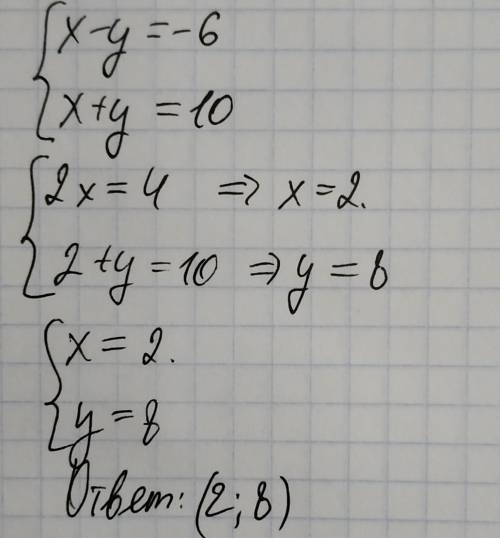 x-y=-6
x+y=10
2x=4 => x=2.
2+y=10 => y=8
x=2.
y=8
Ответ: (2; 8)